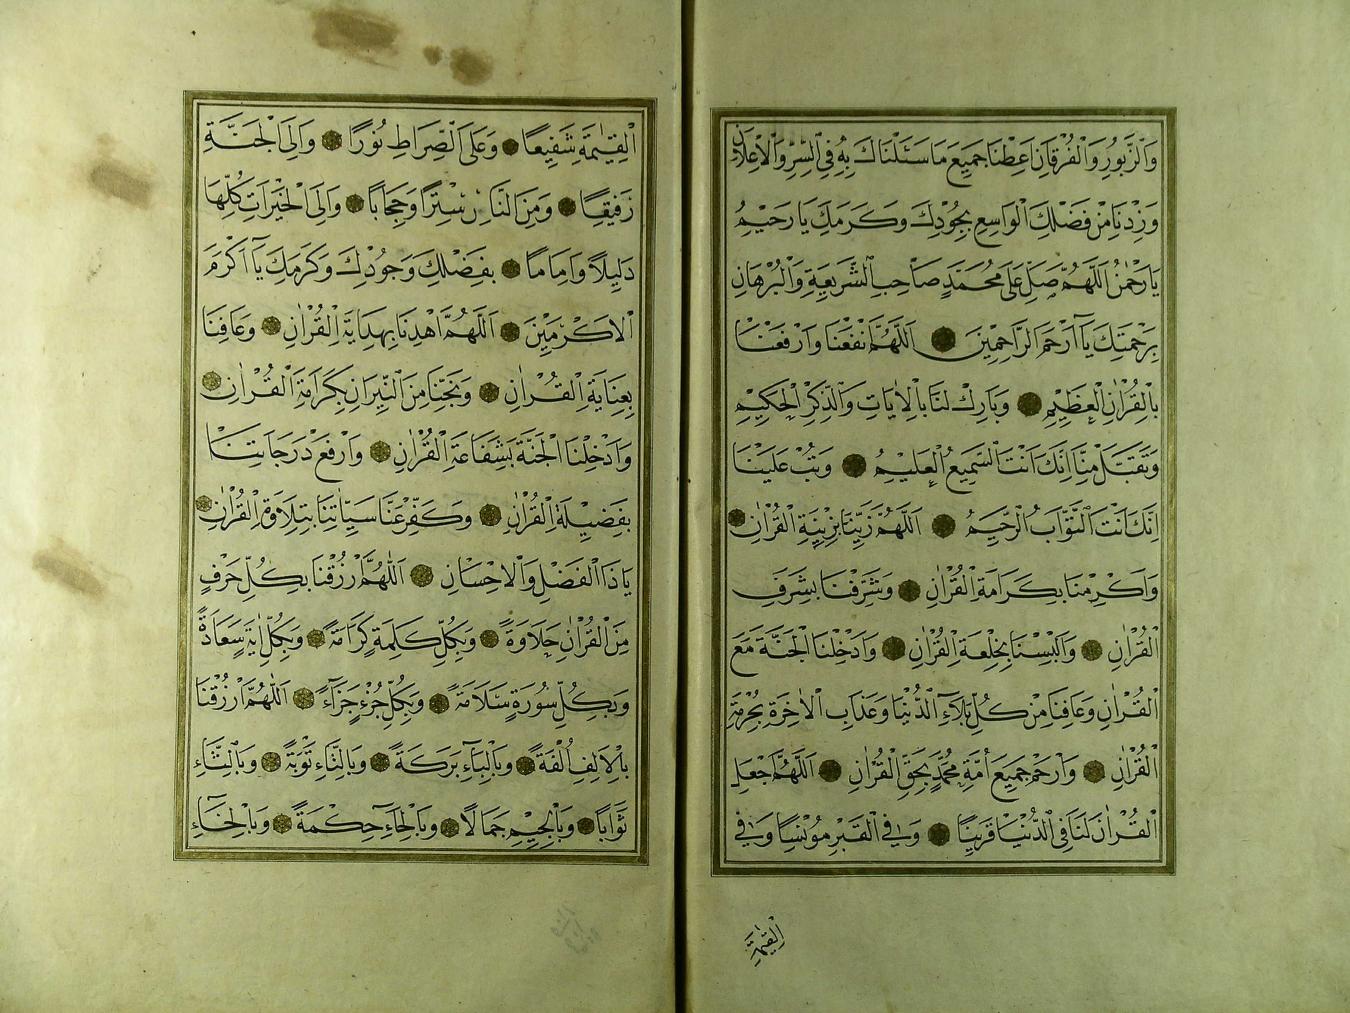 وَالزَّبُورِ وَالْفُرْقَانِ اَعْطِنَا جَمِيعَ مَا سَئَلْنَاكَ بِهِ فِي السِّرِّ وَالْاِعْلَانِ
وَزِدْنَا مِنْ فَضْلِكَ الْوَاسِعِ بِجُودِكَ وَكَرَمِكَ يَا رَحِيمُ
يَا رَحْمٰنُ اَللّٰهُمَّ صَلِّ عَلٰى مُحَمَّدٍ صَاحِبِ الشَّرِيعَةِ وَالْبُرْهَانِ
بِرَحْمَتِكَ يَا اَرْحَمَ الرَّاحِمِينَ اَللّٰهُمَّ انْفَعْنَا وَارْفَعْنَا
بِالْقُرْاٰنِ الْعَظِيمِ وَبَارِكْ لَنَا بِالْاٰيَاتِ وَالذِّكْرِ الْحَكِيمِ
وَتَقَبَّلْ مِنَّا اِنَّكَ اَنْتَ السَّمِيعُ الْعَلِيمُ وَتُبْ عَلَيْنَا
اِنَّكَ اَنْتَ التَّوَّابُ الرَّحِيمُ اَللّٰهُمَّ زَيِّنَّا بِزِينَةِ الْقُرْاٰنِ
وَاَكْرِمْنَا بِكَرَامَةِ الْقُرْاٰنِ وَشَرِّفْنَا بِشَرَفِ
الْقُرْاٰنِ وَاَلْبِسْنَا بِخِلْعَةِ الْقُرْاٰنِ وَاَدْخِلْنَا الْجَنَّةَ مَعَ
الْقُرْاٰنِ وَعَافِنَا مِنْ كُلِّ بَلَاءِ الدُّنْيَا وَعَذَابِ الْاٰخِرَةِ بِحُرْمَةِ
الْقُرْاٰنِ وَارْحَمْ جَمِيعَ اُمَّةِ مُحَمَّدٍ بِحَقِّ الْقُرْاٰنِ اَللّٰهُمَّ اجْعَلِ
الْقُرْاٰنَ لَنَا فِي الدُّنْيَا قَرِينًا وَفِي الْقَبْرِ مُونِسًا وَفِي
الْقِيٰمَةِ
الْقِيٰمَةِ شَفِيعًا وَعَلَى الصِّرَاطِ نُورًا وَاِلَى الْجَنَّةِ
رَفِيقًا وَمِنَ النَّارِ سِتْرًا وَحِجَابًا وَاِلَى الْخَيْرَاتِ كُلِّهَا
دَلِيلًا وَاِمَامًا بِفَضْلِكَ وَجُودِكَ وَكَرَمِكَ يَا اَكْرَمَ
الْاَكْرَمِينَ اَللّٰهُمَّ اهْدِنَا بِهِدَايَةِ الْقُرْاٰنِ وَعَافِنَا
بِعِنَايَةِ الْقُرْاٰنِ وَنَجِّنَا مِنَ النِّيرَانِ بِكَرَامَةِ الْقُرْاٰنِ
وَاَدْخِلْنَا الْجَنَّةَ بِشَفَاعَةِ الْقُرْاٰنِ وَارْفَعْ دَرَجَاتِنَا
بِفَضِيلَةِ الْقُرْاٰنِ وَكَفِّرْ عَنَّا سَيِّاٰتِنَا بِتِلَاوَةِ الْقُرْاٰنِ
يَا ذَا الْفَضْلِ وَالْاِحْسَانِ اَللّٰهُمَّ ارْزُقْنَا بِكُلِّ حَرْفٍ
مِنَ الْقُرْاٰنِ حَلَاوَةً وَبِكُلِّ كَلِمَةٍ كَرَامَةً وَبِكُلِّ اٰيَةٍ سَعَادَةً
وَبِكُلِّ سُورَةٍ سَلَامَةً وَبِكُلِّ جُزْءٍ جَزَاءً اَللّٰهُمَّ ارْزُقْنَا
بِالْاَلِفِ اُلْفَةً وَبِالْبَاءِ بَرَكَةً وَبِالتَّاءِ تَوْبَةً وَبِالثَّاءِ
ثَوَابًا وَبِالْجِيمِ جَمَالًا وَبِالْحَاءِ حِكْمَةً وَبِالْخَاءِ